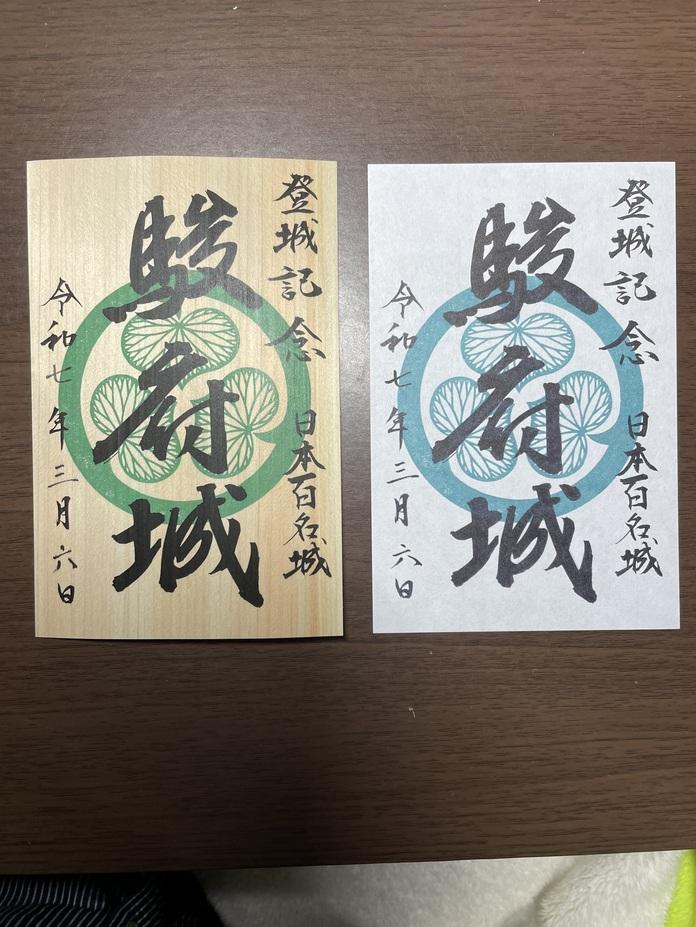 登城記念 日本百名城
駿府城
令和七年三月六日
登城記念 日本百名城
駿府城
令和七年三月六日